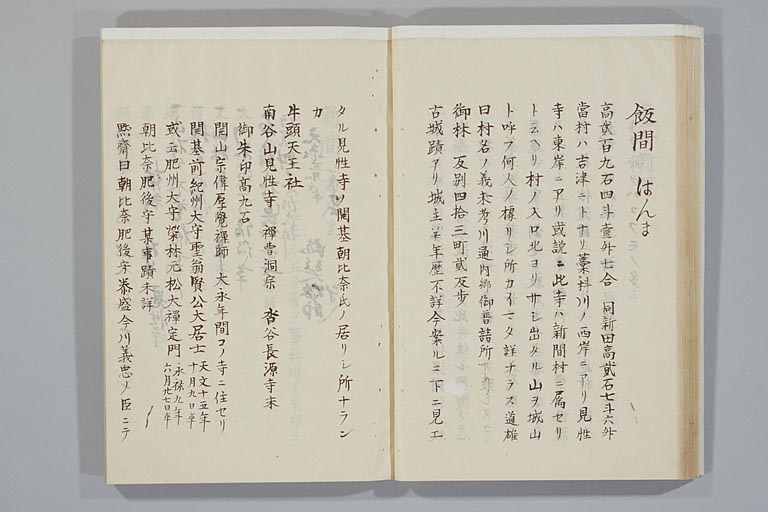 飯間 はんま
高貳百九石四斗壹舛七合 同新田高貳石七斗六舛
當村ハ吉津ニトナリ藁科川ノ西岸ニアリ見性
寺ハ東岸ニアリ或説ニ此寺ハ新間村ニ属セリ
ト云ヘリ村ノ入口北ヨリサシ出タル山ヲ城山
ト呼フ何人ノ據リシ所カイマタ詳ナラス道雄
曰村名ノ義未考川通内郷御普請所
御林 反別四拾三町貳反步
古城蹟アリ城主年歴不詳今案ルニ下ニ見エ
タル見性寺ノ開基朝比奈氏ノ居リシ所ナラン
カ
牛頭天王社
南谷山見性寺 禪曹洞宗 沓谷長源寺末
御朱印高九石
開山宗偉厚覺禪師 大永年間コノ寺ニ住セリ
開基前紀州大守聖翁賢公大居士 天文十五年十月九日卒
或云肥州大守榮林元松大禪定門 永禄九年六月廿七日卒
朝比奈肥後守某事蹟未詳
黙齋曰朝比奈肥後守泰盛今川義忠ノ臣ニテ